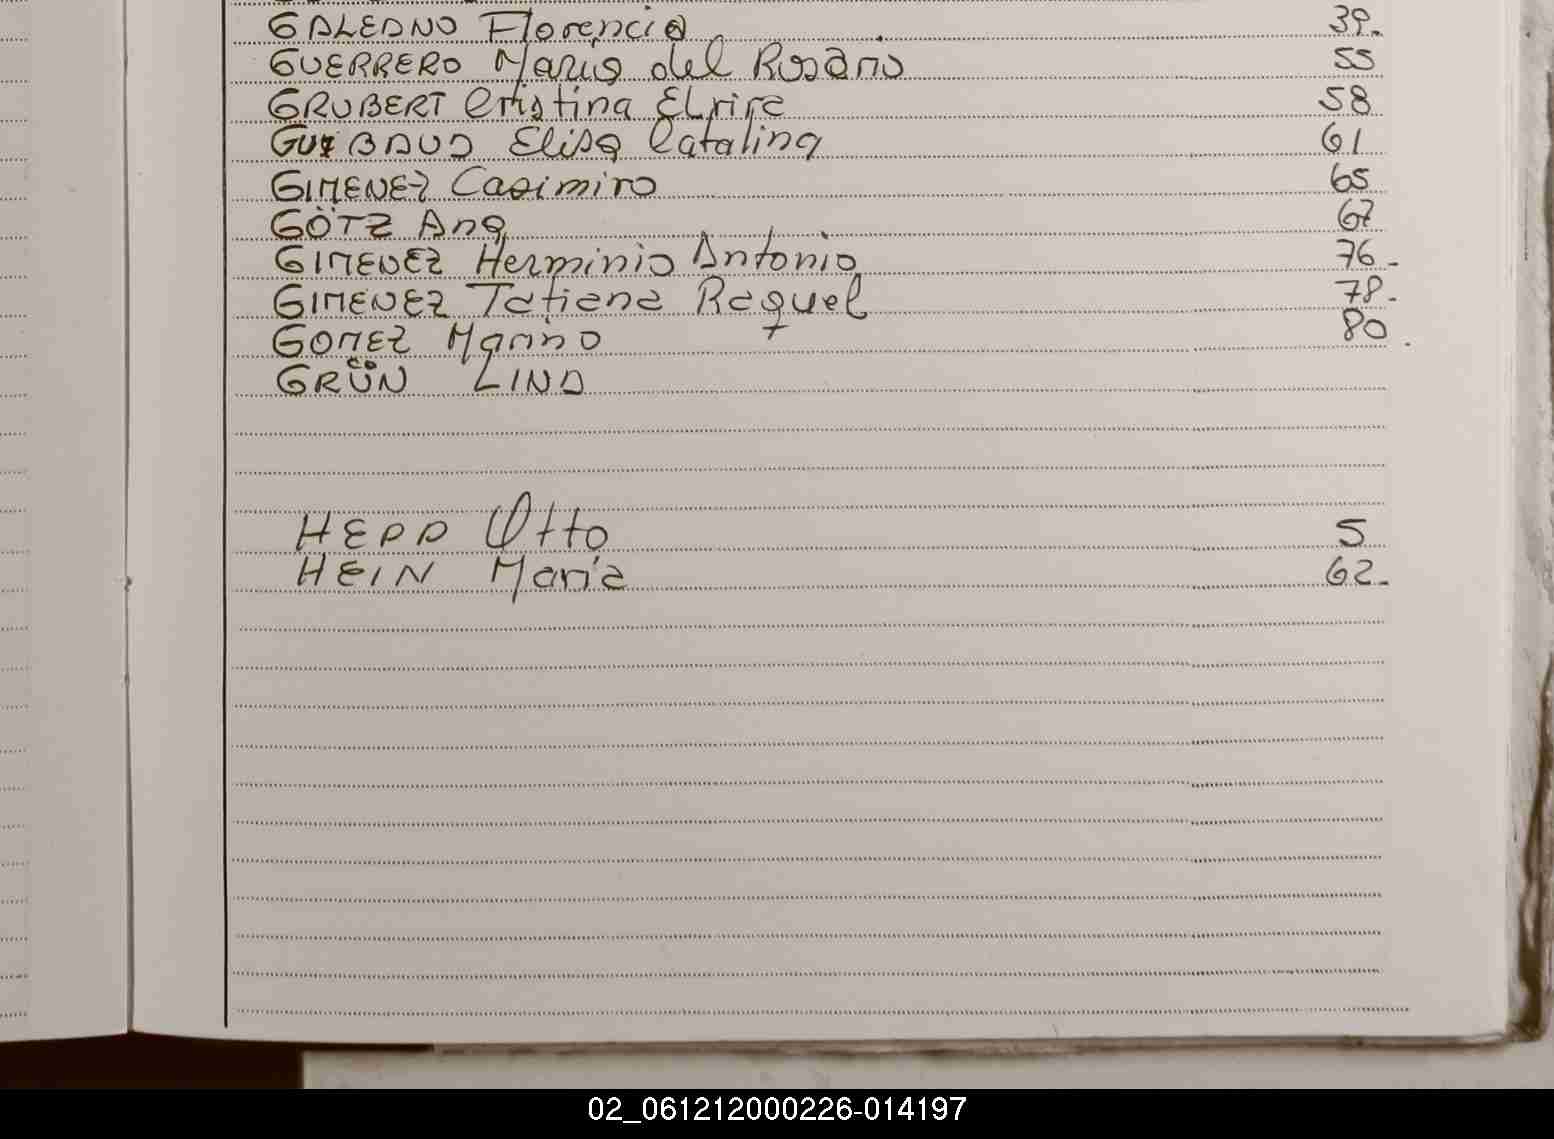 GALEANO Florencia 39.
GUERRERO María del Rosario 55
GRUBERT Cristina Elvira 58
Elisa Catalina 61
GIMENEZ Casimiro 65
GÖTZ Ana 67
GIMENEZ Herminio Antonio 76.
GIMENEZ Tatiana Raquel 78.
GOMEZ Marino 80.
GRÜN LINA
HEPP Otto 5
HEIN María 62.
02_061212000226-014197